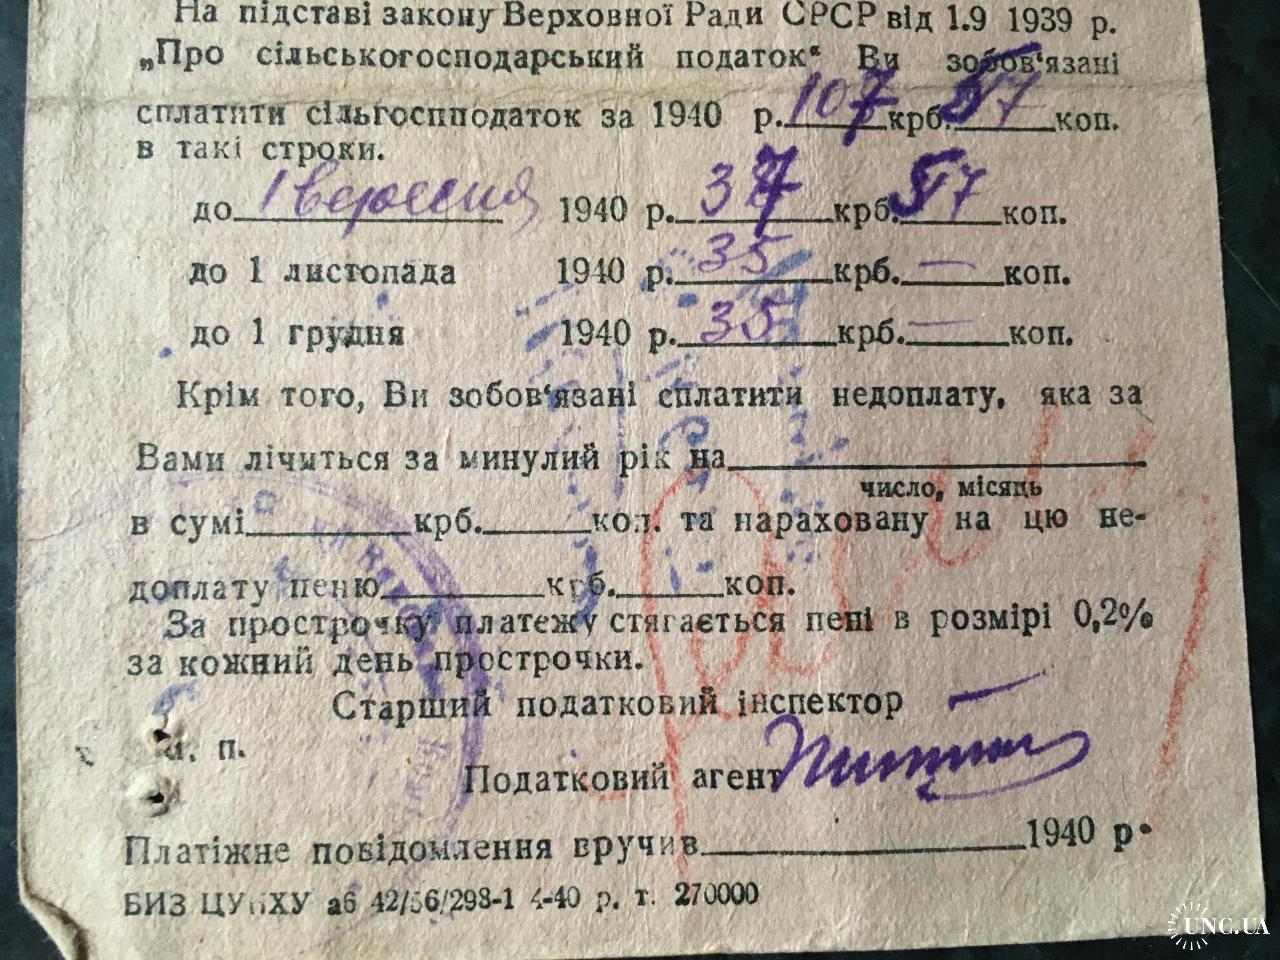 На підставі закону Верховної Ради СРСР від 1.9 1939 р.
„Про сільськогосподарський податок“ Ви зобов‘язані
сплатити сільгоспподаток за 1940 р. 107 крб. 57 коп.
в такі строки.
до 1 вересня 1940 р. 37 крб. 57 коп.
до 1 листопада 1940 р. 35 крб. — коп.
до 1 грудня 1940 р. 35 крб. — коп.
Крім того, Ви зобов‘язані сплатити недоплату, яка за
Вами лічиться за минулий рік на
число, місяць
в сумі крб. коп. та нараховану на цю не-
доплату пеню крб. коп.
За прострочку платежу стягається пені в розмірі 0,2%
за кожний день прострочки.
Старший податковий інспектор
п.
Податковий агент
Платіжне повідомлення вручив 1940 р.
БИЗ аб 42/56/298-1 4-40 р. т. 270000
UNC.UA